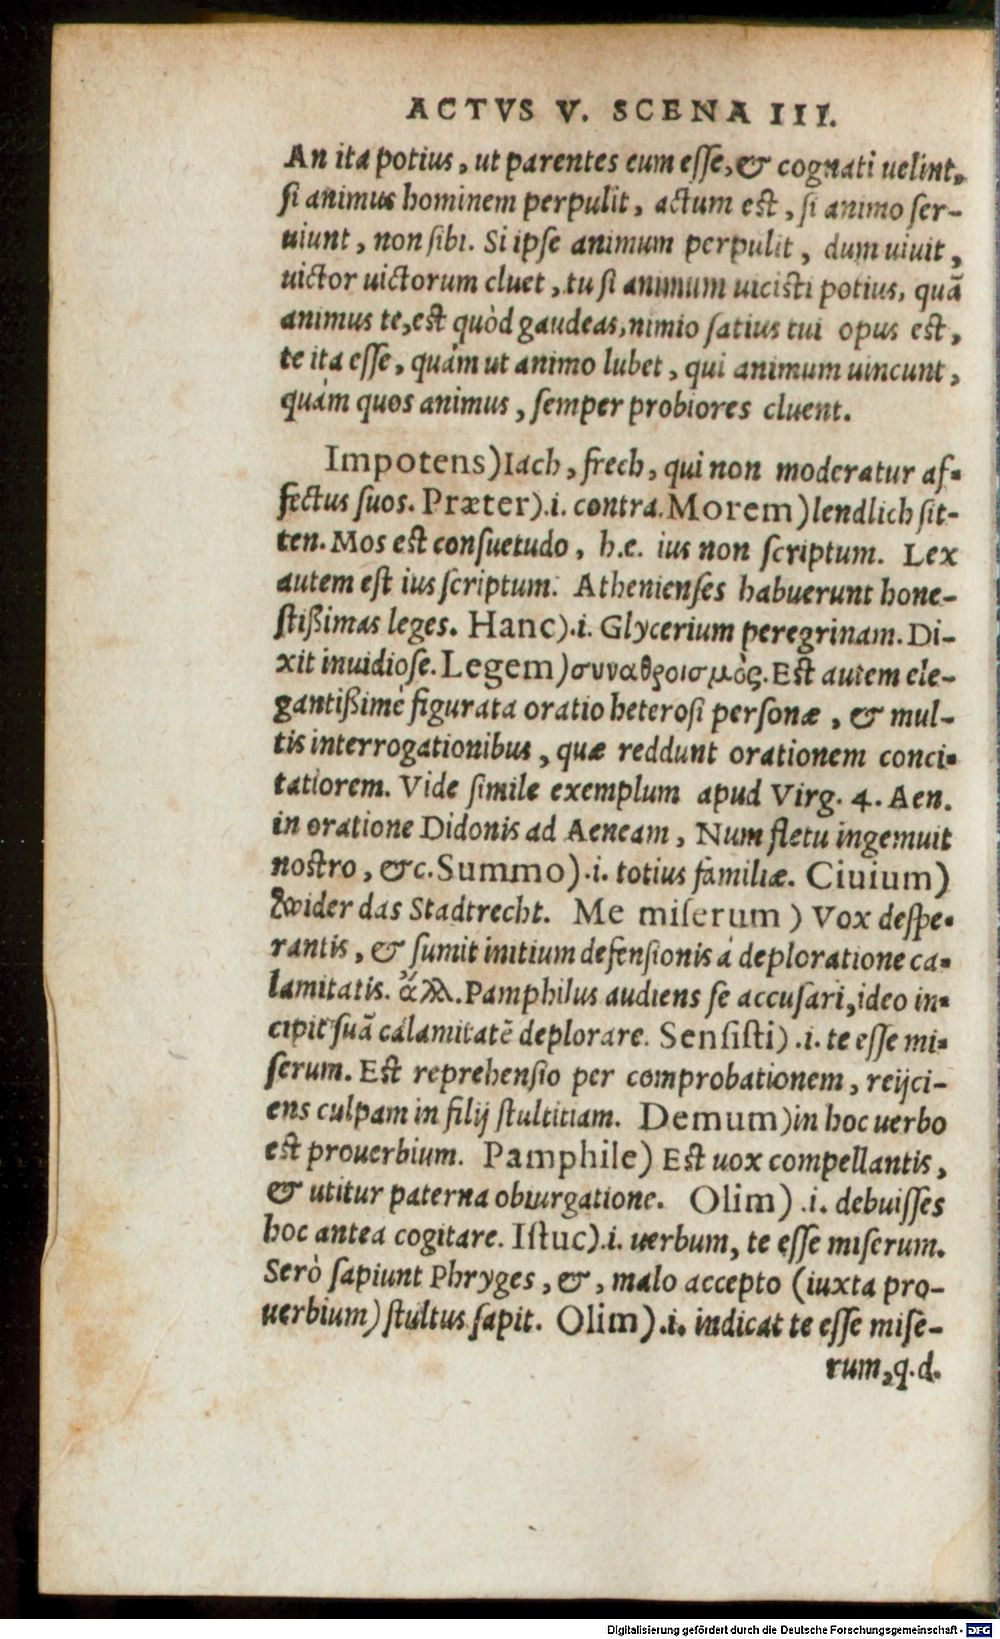 ACTVS V. SCENA III.
An ita potius, ut parentes eum esse, & cognati uelint,
si animus hominem perpulit, actum est, si animo ser-
uiunt, non sibi. Si ipse animum perpulit, dum uiuit,
uictor uictorum cluet, tu si animum uicisti potius, quã
animus te, est quòd gaudeas, nimio satius tui opus est,
te ita esse, quàm ut animo lubet, qui animum uincunt,
quàm quos animus, semper probiores cluent.
Impotens) Iach, frech, qui non moderatur af-
fectus suos. Præter) .i. contra. Morem) lendlich sit-
ten. Mos est consuetudo, h.e. ius non scriptum. Lex
autem est ius scriptum. Athenienses habuerunt hone-
stißimas leges. Hanc) .i. Glycerium peregrinam. Di-
xit inuidiose. Legem) συναθροισμὸς. Est autem ele-
gantißimè figurata oratio heterosi personæ, & mul-
tis interrogationibus, quæ reddunt orationem conci-
tatiorem. Vide simile exemplum apud Virg. 4. Aen.
in oratione Didonis ad Aeneam, Num fletu ingemuit
nostro, &c. Summo) .i. totius familiæ. Ciuium)
Zwider das Stadtrecht. Me miserum) Vox despe-
rantis, & sumit initium defensionis à deploratione ca-
lamitatis. ἄλλ. Pamphilus audiens se accusari, ideo in-
cipit suã calamitatẽ deplorare. Sensisti) .i. te esse mi-
serum. Est reprehensio per comprobationem, reijci-
ens culpam in filij stultitiam. Demum) in hoc uerbo
est prouerbium. Pamphile) Est uox compellantis,
& utitur paterna obiurgatione. Olim) .i. debuisses
hoc antea cogitare. Istuc) .i. uerbum, te esse miserum.
Serò sapiunt Phryges, &, malo accepto (iuxta pro-
uerbium) stultus sapit. Olim) .i. indicat te esse mise-
rum, q.d.
Digitalisierung gefördert durch die Deutsche Forschungsgemeinschaft - DFG